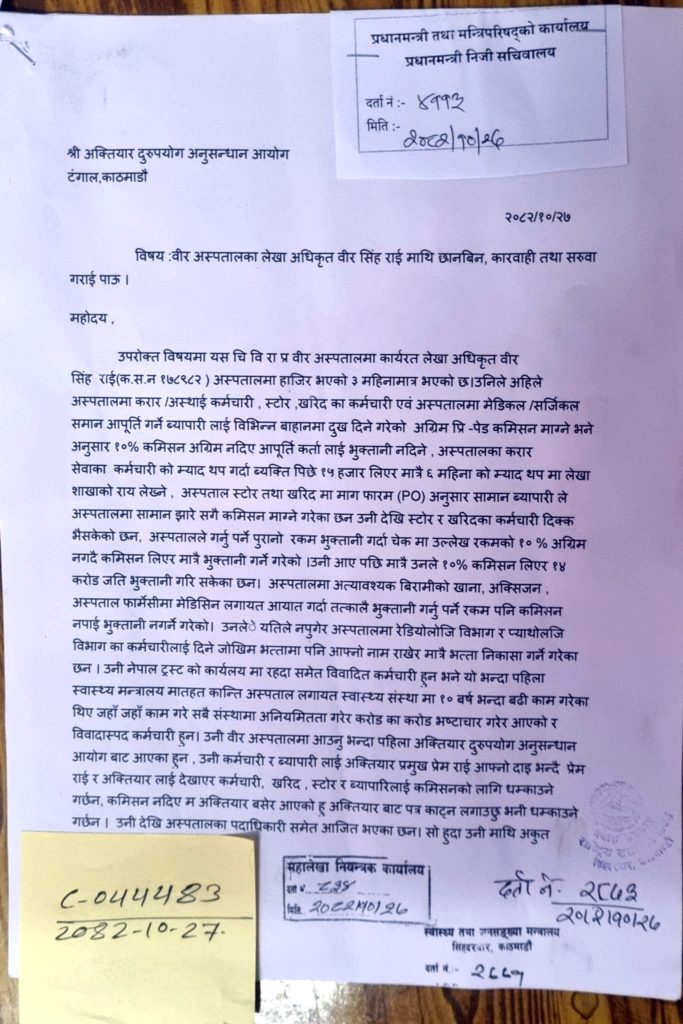 प्रधानमन्त्री तथा मन्त्रिपरिषद्को कार्यालय
प्रधानमन्त्री निजी सचिवालय
दर्ता नं :- ४११३
मिति :- २०८२/१०/२६
श्री अक्तियार दुरुपयोग अनुसन्धान आयोग
टंगाल,काठमाडौ
२०८२/१०/२७
विषय :वीर अस्पतालका लेखा अधिकृत वीर सिंह राई माथि छानबिन, कारवाही तथा सरुवा
गराई पाऊ ।
महोदय ,
उपरोक्त विषयमा यस चि वि रा प्र वीर अस्पतालमा कार्यरत लेखा अधिकृत वीर
सिंह राई(क.स.न १७८९८२ ) अस्पतालमा हाजिर भएको ३ महिनामात्र भएको छ।उनिले अहिले
अस्पतालमा करार /अस्थाई कर्मचारी , स्टोर ,खरिद का कर्मचारी एवं अस्पतालमा मेडिकल /सर्जिकल
समान आपूर्ति गर्ने ब्यापारी लाई विभिन्न बाहानमा दुख दिने गरेको अग्रिम प्रि -पेड कमिसन माग्ने भने
अनुसार १०% कमिसन अग्रिम नदिए आपूर्ति कर्ता लाई भुक्तानी नदिने , अस्पतालका करार
सेवाका कर्मचारी को म्याद थप गर्दा ब्यक्ति पिछे १५ हजार लिएर मात्रै ६ महिना को म्याद थप मा लेखा
शाखाको राय लेख्ने , अस्पताल स्टोर तथा खरिद मा माग फारम (PO) अनुसार सामान ब्यापारी ले
अस्पतालमा सामान झारे सगै कमिसन माग्ने गरेका छन उनी देखि स्टोर र खरिदका कर्मचारी दिक्क
भैसकेको छन, अस्पतालले गर्नु पर्ने पुरानो रकम भुक्तानी गर्दा चेक मा उल्लेख रकमको १० % अग्रिम
नगदै कमिसन लिएर मात्रै भुक्तानी गर्ने गरेको ।उनी आए पछि मात्रै उनले १०% कमिसन लिएर १४
करोड जति भुक्तानी गरि सकेका छन। अस्पतालमा अत्यावश्यक बिरामीको खाना, अक्सिजन ,
अस्पताल फार्मेसीमा मेडिसिन लगायत आयात गर्दा तत्कालै भुक्तानी गर्नु पर्ने रकम पनि कमिसन
नपाई भुक्तानी नगर्ने गरेको। उनलेे यतिले नपुगेर अस्पतालमा रेडियोलोजि विभाग र प्याथोलजि
विभाग का कर्मचारीलाई दिने जोखिम भत्तामा पनि आफ्नो नाम राखेर मात्रै भत्ता निकासा गर्ने गरेका
छन । उनी नेपाल ट्रस्ट को कार्यलय मा रहदा समेत विवादित कर्मचारी हुन भने यो भन्दा पहिला
स्वास्थ्य मन्त्रालय मातहत कान्ति अस्पताल लगायत स्वास्थ्य संस्था मा १० बर्ष भन्दा बढी काम गरेका
थिए जहाँ जहाँ काम गरे सबै संस्थामा अनियमितता गरेर करोड का करोड भष्टाचार गरेर आएको र
विवादास्पद कर्मचारी हुन। उनी वीर अस्पतालमा आउनु भन्दा पहिला अक्तियार दुरुपयोग अनुसन्धान
आयोग बाट आएका हुन , उनी कर्मचारी र ब्यापारी लाई अक्तियार प्रमुख प्रेम राई आफ्नो दाइ भन्दै प्रेम
राई र अक्तियार लाई देखाएर कर्मचारी, खरिद , स्टोर र ब्यापारिलाई कमिसनको लागि धम्काउने
गर्छन, कमिसन नदिए म अक्तियार बसेर आएको हु अक्तियार बाट पत्र काट्न लगाउछु भनी धम्काउने
गर्छन । उनी देखि अस्पतालका पदाधिकारी समेत आजित भएका छन। सो हुदा उनी माथि अकुत
C-044483
2082-10-27.
महालेखा नियन्त्रक कार्यालय
दर्ता नं.
मिति. २०८२/१०/२६
दर्ता नं- २८७३
२०८२/१०/२६
स्वास्थ्य तथा जनसङ्ख्या मन्त्रालय
सिंहदरबार, काठमाडौं
दर्ता नं.:-